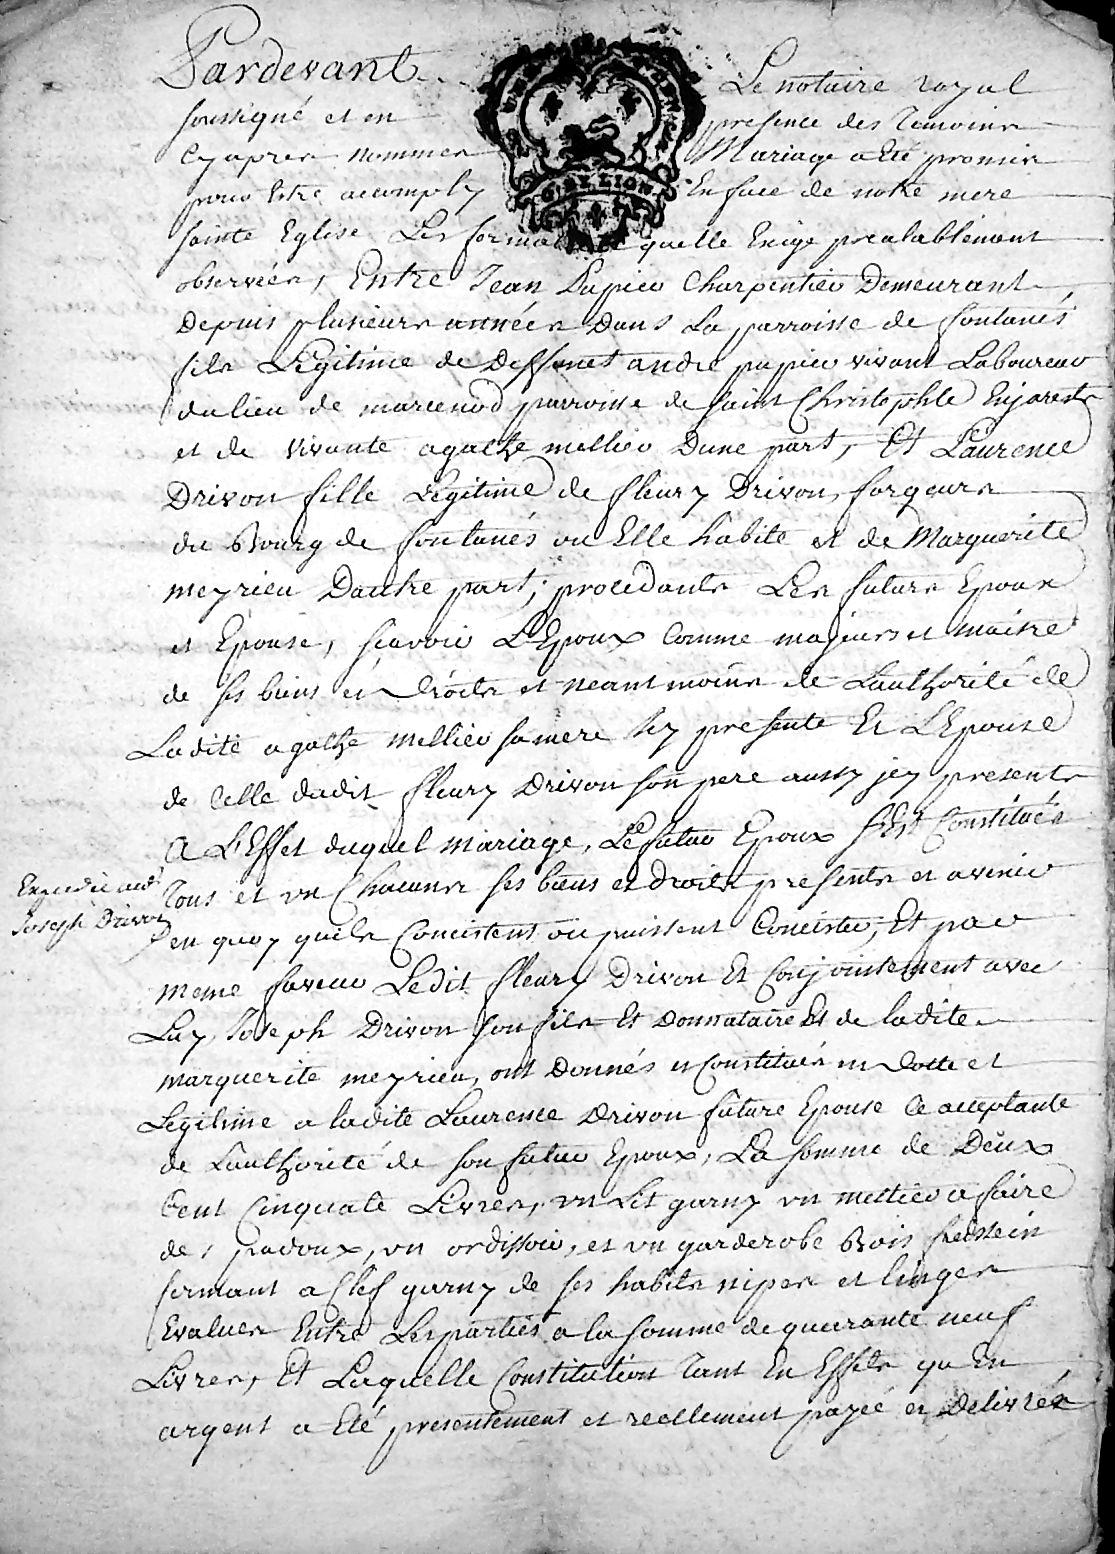 Pardevant Le notaire royal
soussigné et en presence des Temoins
cy apres nommes Mariage a Eté promis
pour Estre accomply En face de notre mere
sainte Eglise Les quelle Exige prealablement
observées, Entre Jean papier Charpentier Demeurant
Depuis plusieurs années Dans La parroisse de fontanés
fils Legitime de Deffunct andré papier vivant Laboureur
du lieu de marcenod parroisse de saint Christophle Enjarest
et de vivante agathe mellier Dune part, Et Laurence
Drivon fille Legitime de fleury Drivon, forgeur
du Bourg de fontanés ou Elle habite et de Marguerite
meyrieu Dautre part; procedants Les futurs Epoux
et Epouse, scavoir L'Epoux Comme majeur et maitre
de ses biens et droits et neant moins de Lauthorité de
Ladite agathe mellier sa mere icy presente Et L'Epouse
de Celle dudit fleury Drivon son pere aussy icy present
A L'Effet duquel mariage, Le futur Epoux s'Est Constitués
Expedié aud.
Joseph Drivon
Tous et un Chacuns ses biens et droits presents et avenir
en quoy quils Concistent ou puissent Concister, Et par
meme faveur Ledit fleury Drivon Et Conjointement avec
Luy Joseph Drivon son fils Et Donnataire Et de ladite
marguerite meyrieu, ont Donnés et Constitués en Dotte et
Legitime a ladite Laurence Drivon future Epouse Ce acceptante
de Lauthorité de son futur Epoux, La somme de Deux
Cent Cinquate Livres, un Lit garny un mettier a faire
des padoux, un ordissoir, et un garderobe Bois
fermant a Clef garny de ses habits nipes et linges
Evalués Entre Les parties a la somme de quarante neuf
Livres, Et Laquelle Constitution Tant En Effets qu'En
argent a Eté presentement et reellement payée et Delivrée